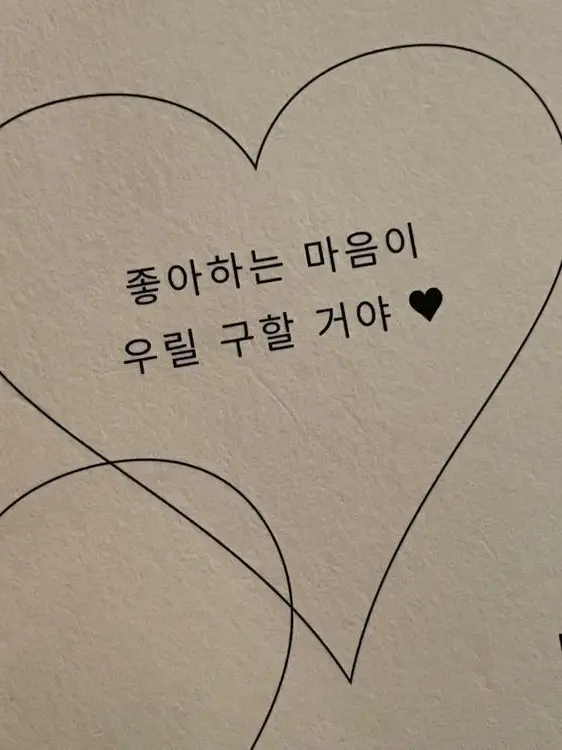 좋아하는 마음이
우릴 구할 거야 ♥